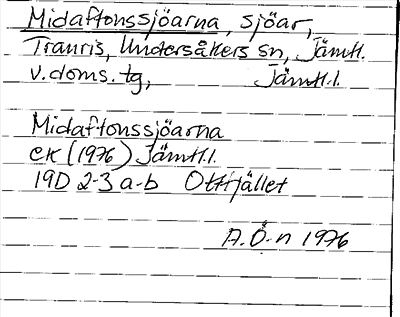 Midaftonssjöarna, sjöar,
Tranris, Undersåkers sn, Jämtl.
v. doms. tg, Jämtl. l.
Midaftonssjöarna
ek (1976) Jämtl. l.
19D 2-3 a-b Ottfjället
A. Ö-n 1976